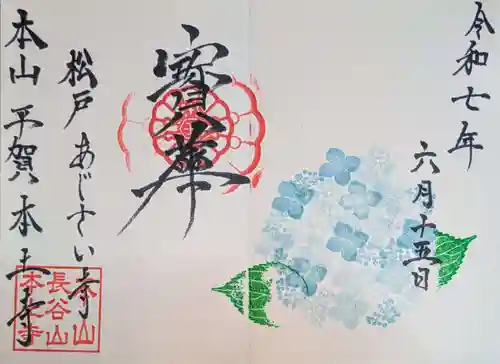 令和七年
六月十五日
寳華
松戸 あじさい寺
本山 平賀 本土寺
長谷山
本土寺